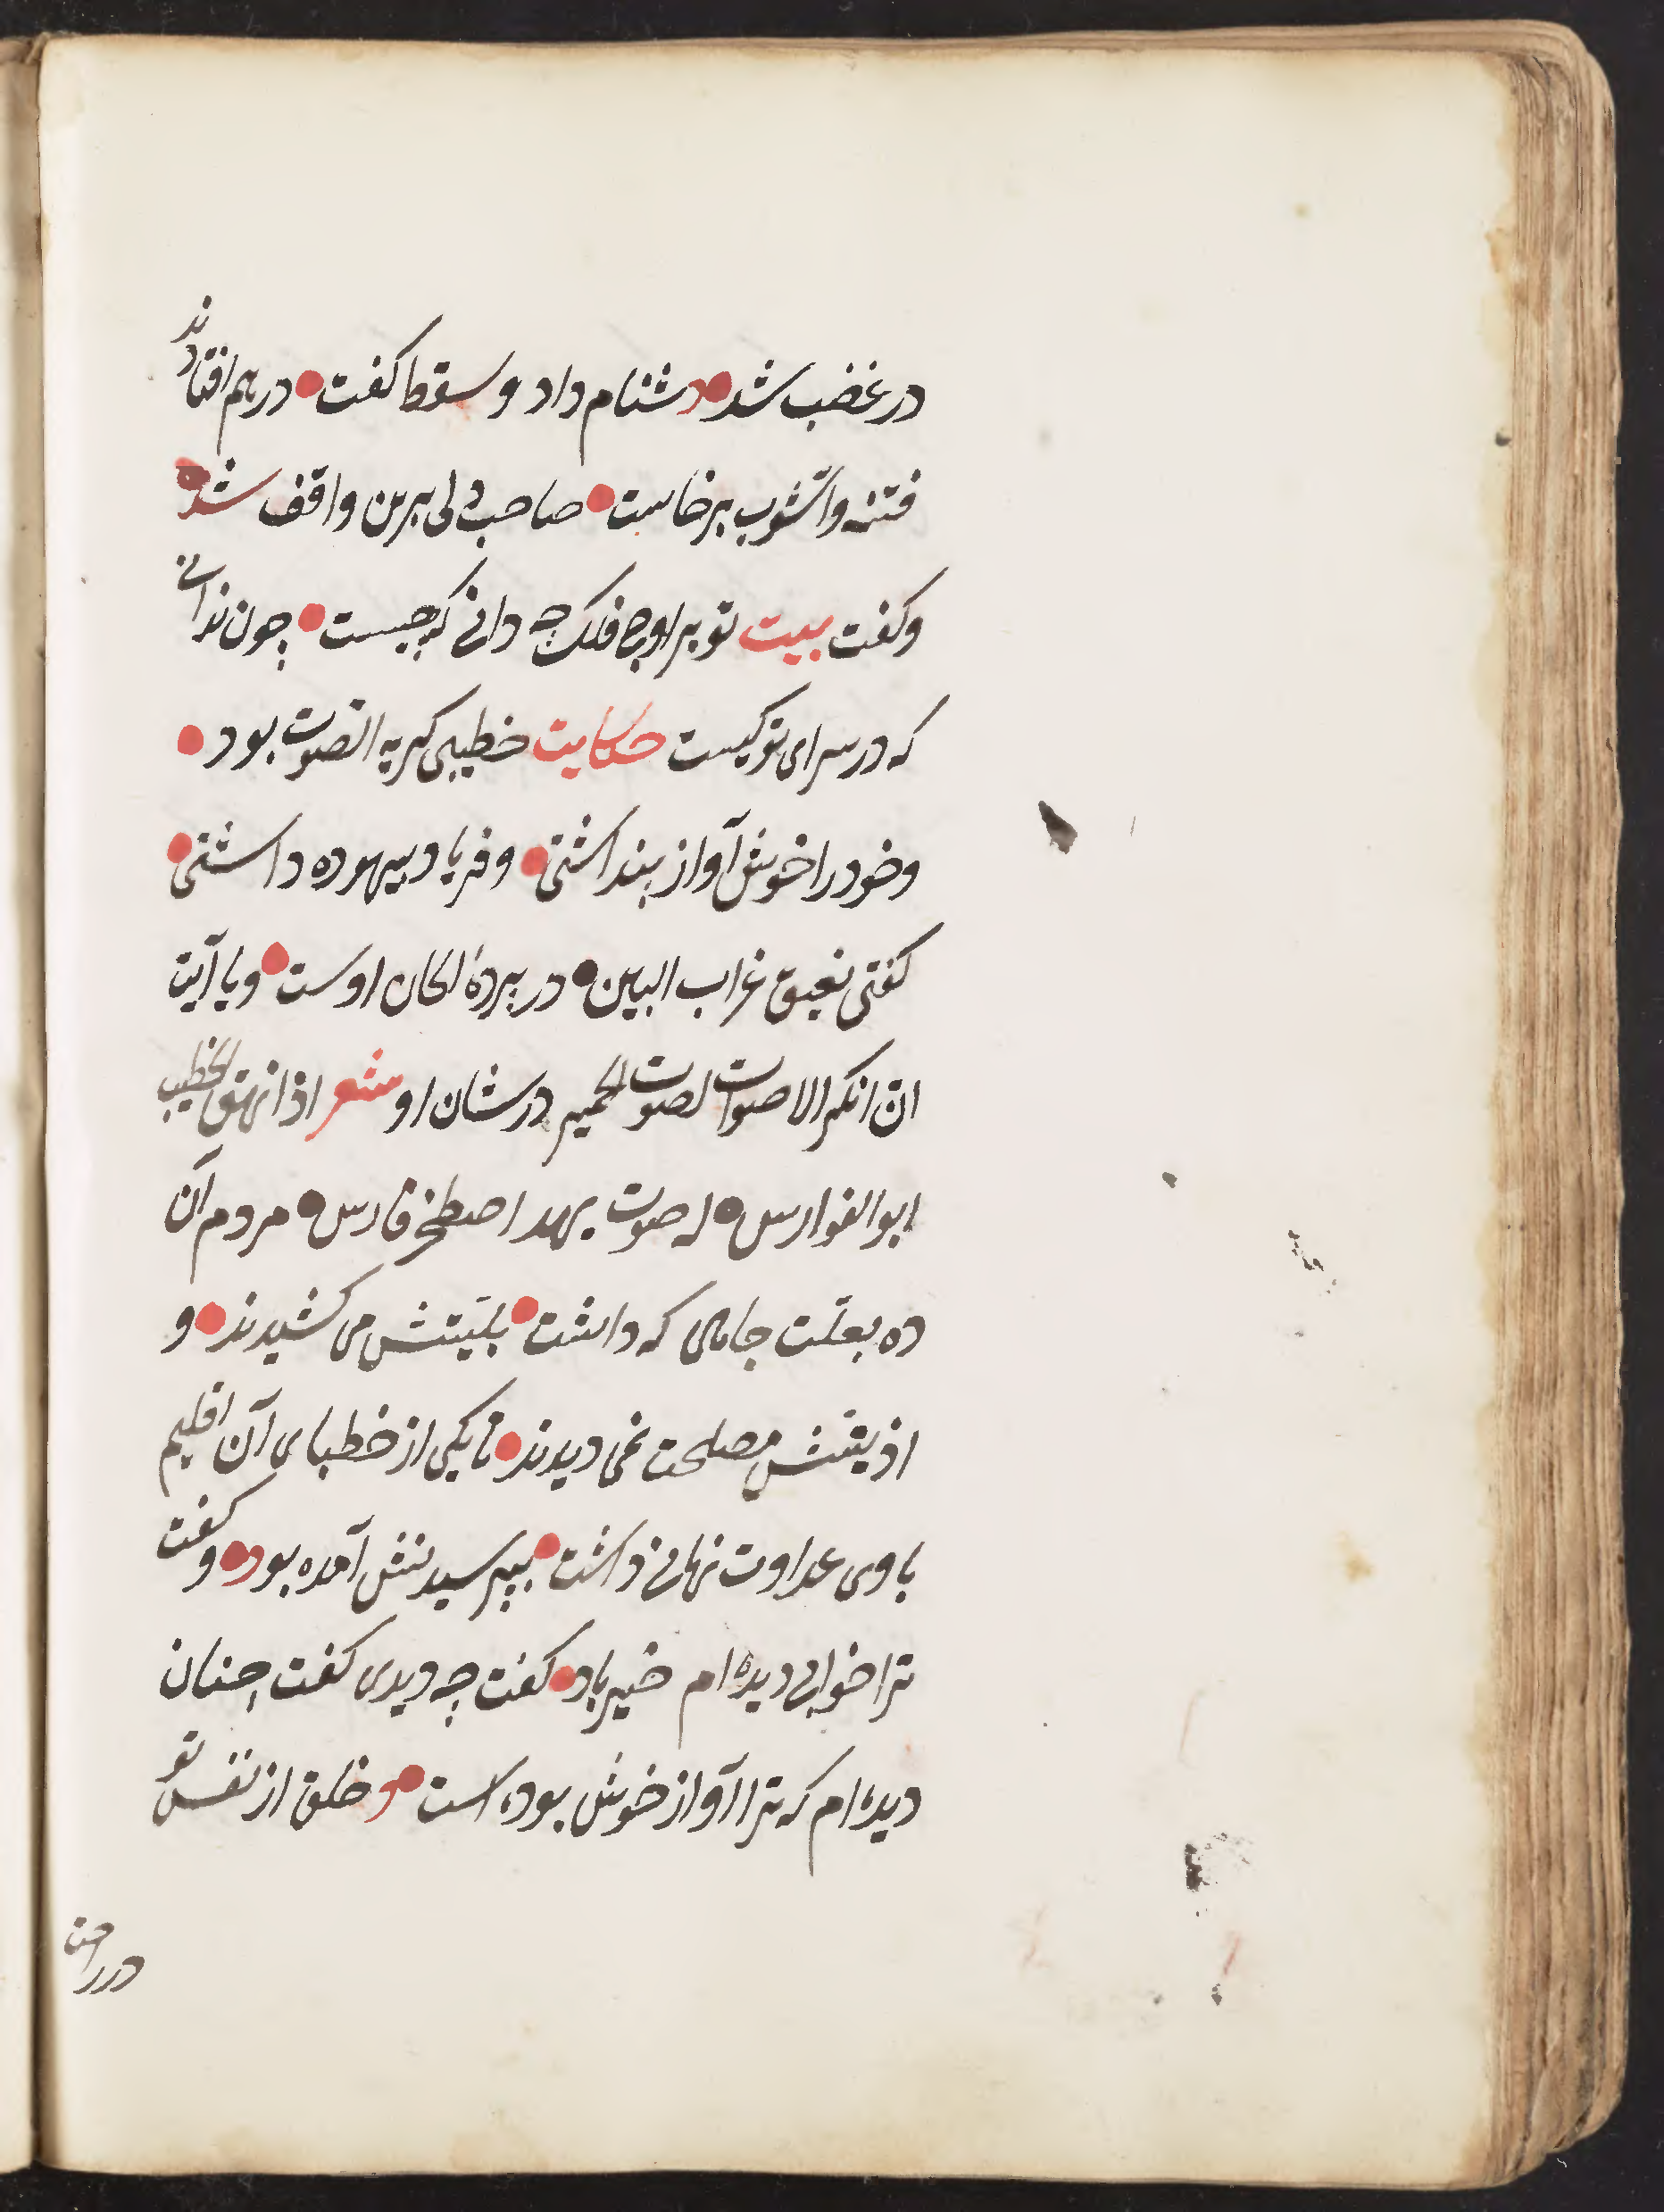 در غضب شد دشنام داد و سقط کفت درهم افتادند
فتنه و آشوب برخاست صاحب دلی برین واقف شد
و کفت بیت تو بر اوج فلک چه دانی که چیست چون ندانی
که در سرای تو کیست حکایت خطیبی کریه الصوت بود
و خود را خوش آواز پنداشتی و فریاد بیهوده داشتی
کفتی نعیق غراب البین در پردهٔ الحان اوست و یا آیت
ان انکر الاصوات لصوت الحمیر در شان او شعر اذا نهق الخطیب
ابوالفوارس له صوت یهد اصطخر فارس مردم آن
ده بعلّت جاهی که داشت بلیّتش می کشیدند و
اذیتش مصلحت نمی دیدند تا یکی از خطبای آن اقلیم
با وی عداوت نهانی داشت بپرسیدنش آمده بود و کفت
ترا خوابی دیده ام خیر باد کفت چه دیدی کفت چنان
دیده ام که ترا آواز خوش بوده است و خلق از نفس تو
در راحت